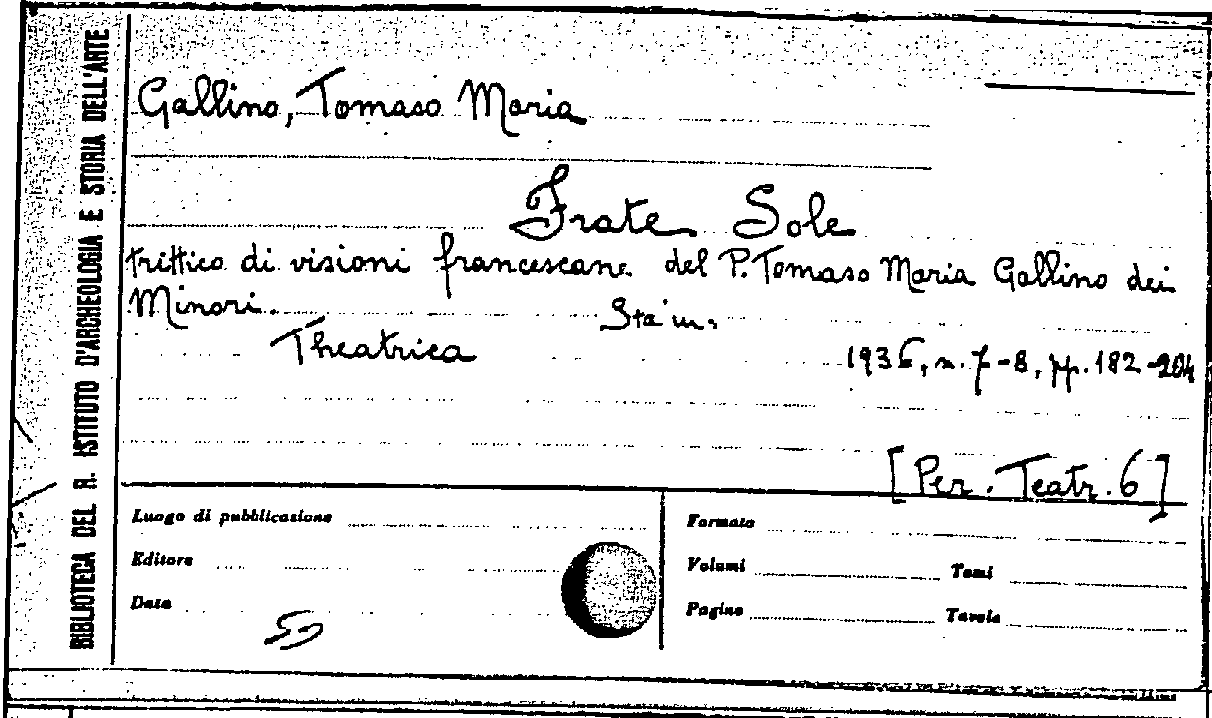 BIBLIOTECA DEL R. ISTITUTO D'ARCHEOLOGIA E STORIA DELL'ARTE
Gallino, Tomaso Maria
Frate Sole
trittico di visioni francescane del P. Tomaso Maria Gallino dei
Minori.
Theatrica 1936, n. 7-8, pp. 182-204
[Per. Teatr. 6]
Luogo di pubblicazione
Formato
Editore
Volumi Tomi
Data
Pagine Tavole